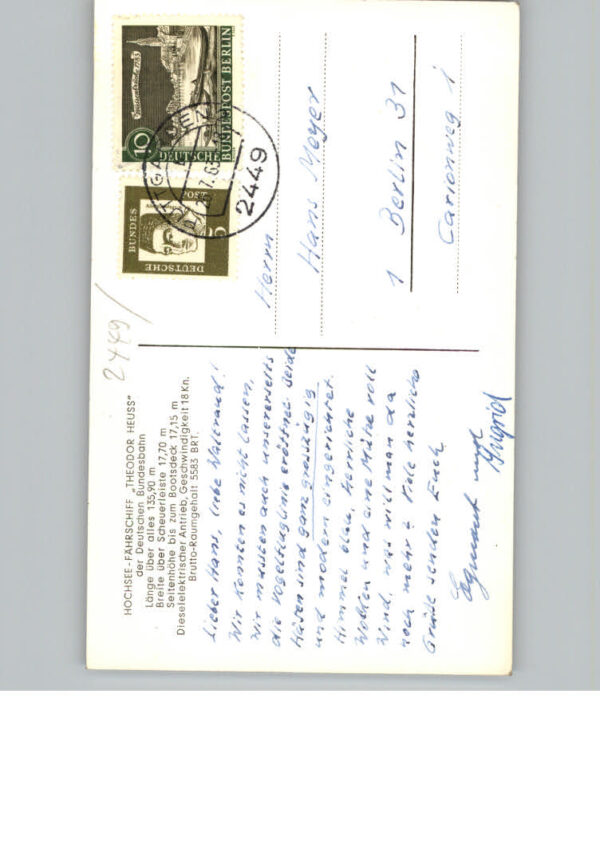 HOCHSEE-FÄHRSCHIFF „THEODOR HEUSS"
der Deutschen Bundesbahn
Länge über alles 135,90 m
Breite über Scheuerleiste 17,70 m
Seitenhöhe bis zum Bootsdeck 17,15 m
Dieselelektrischer Antrieb, Geschwindigkeit 18 Kn.
Brutto-Raumgehalt: 5583 BRT.
Lieber Hans, liebe Waltraud!
Wir konnten es nicht lassen,
wir mussten auch unsererseits
die Vogelfluglinie eröffnen. Beide
Häfen sind ganz grosszügig
und modern eingerichtet.
Himmel blau, herrliche
Wolken und eine Mütze voll
Wind, was will man da
noch mehr? Viele herzliche
Grüße senden Euch
und
Ingrid
2449/
10
DEUTSCHE BUNDESPOST BERLIN
DEUTSCHE
BUNDES
POST
7.63
2449
Herrn
Hans Meyer
1 Berlin 31
Carionweg 1